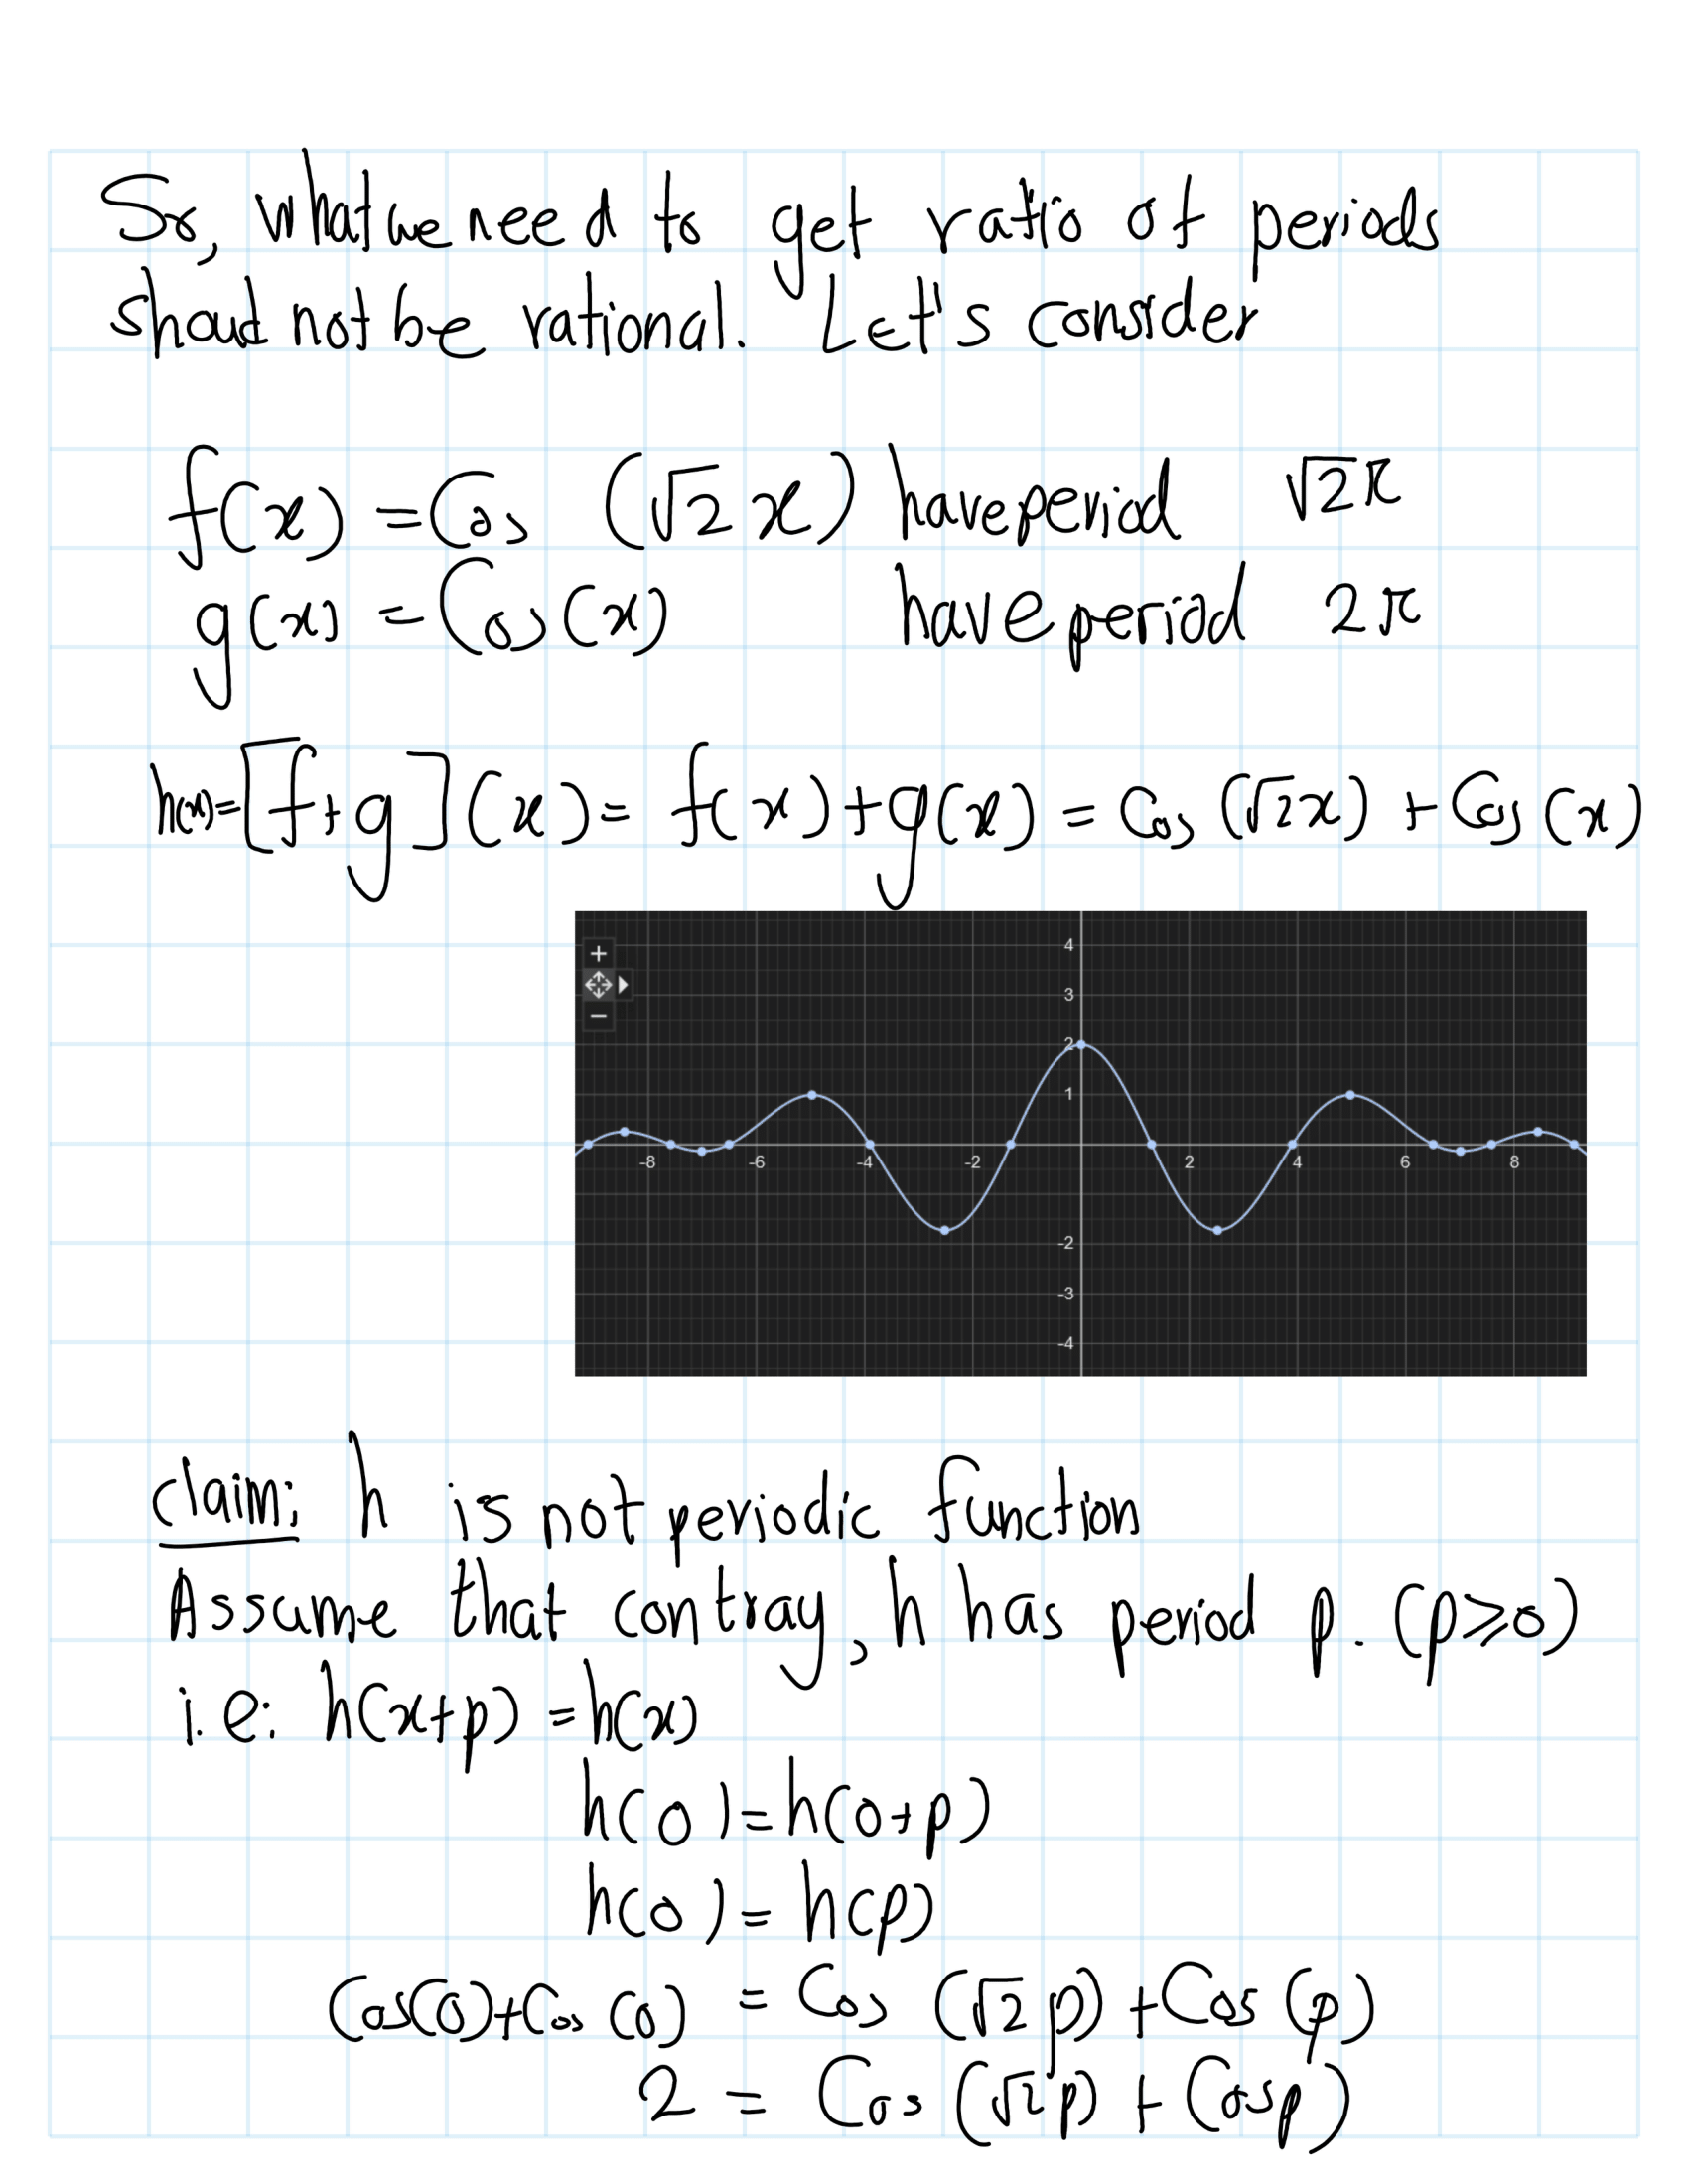 So, what we need to get ratio of periods
should not be rational. Let's consider
f(x) = Cos (√2 x) have period √2π
g(x) = Cos(x) have period 2π
h(x)=[f+g](x)= f(x)+g(x) = Cos (√2x) + Cos (x)
+
−
4
3
2
1
-8 -6 -4 -2 2 4 6 8
-2
-3
-4
claim: h is not periodic function
Assume that contray, h has period p. (p⩾0)
i.e: h(x+p) = h(x)
h(0)=h(0+p)
h(0) = h(p)
Cos(0)+Cos (0) = Cos (√2 p) + Cos (p)
2 = Cos (√2p) + Cosp)